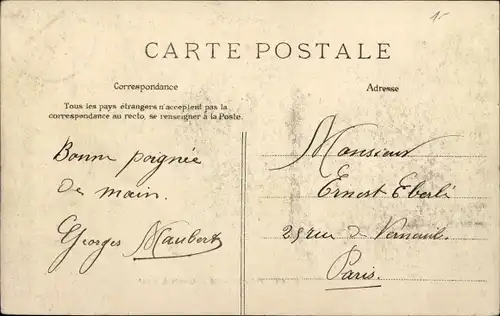 1.-
CARTE POSTALE
Correspondance
Tous les pays étrangers n'acceptent pas la
correspondance au recto, se renseigner à la Poste.
Bonne poignée
De main.
Georges Maubert
Adresse
Monsieur
Ernest Eberlé
25 rue d Verneuil.
Paris.